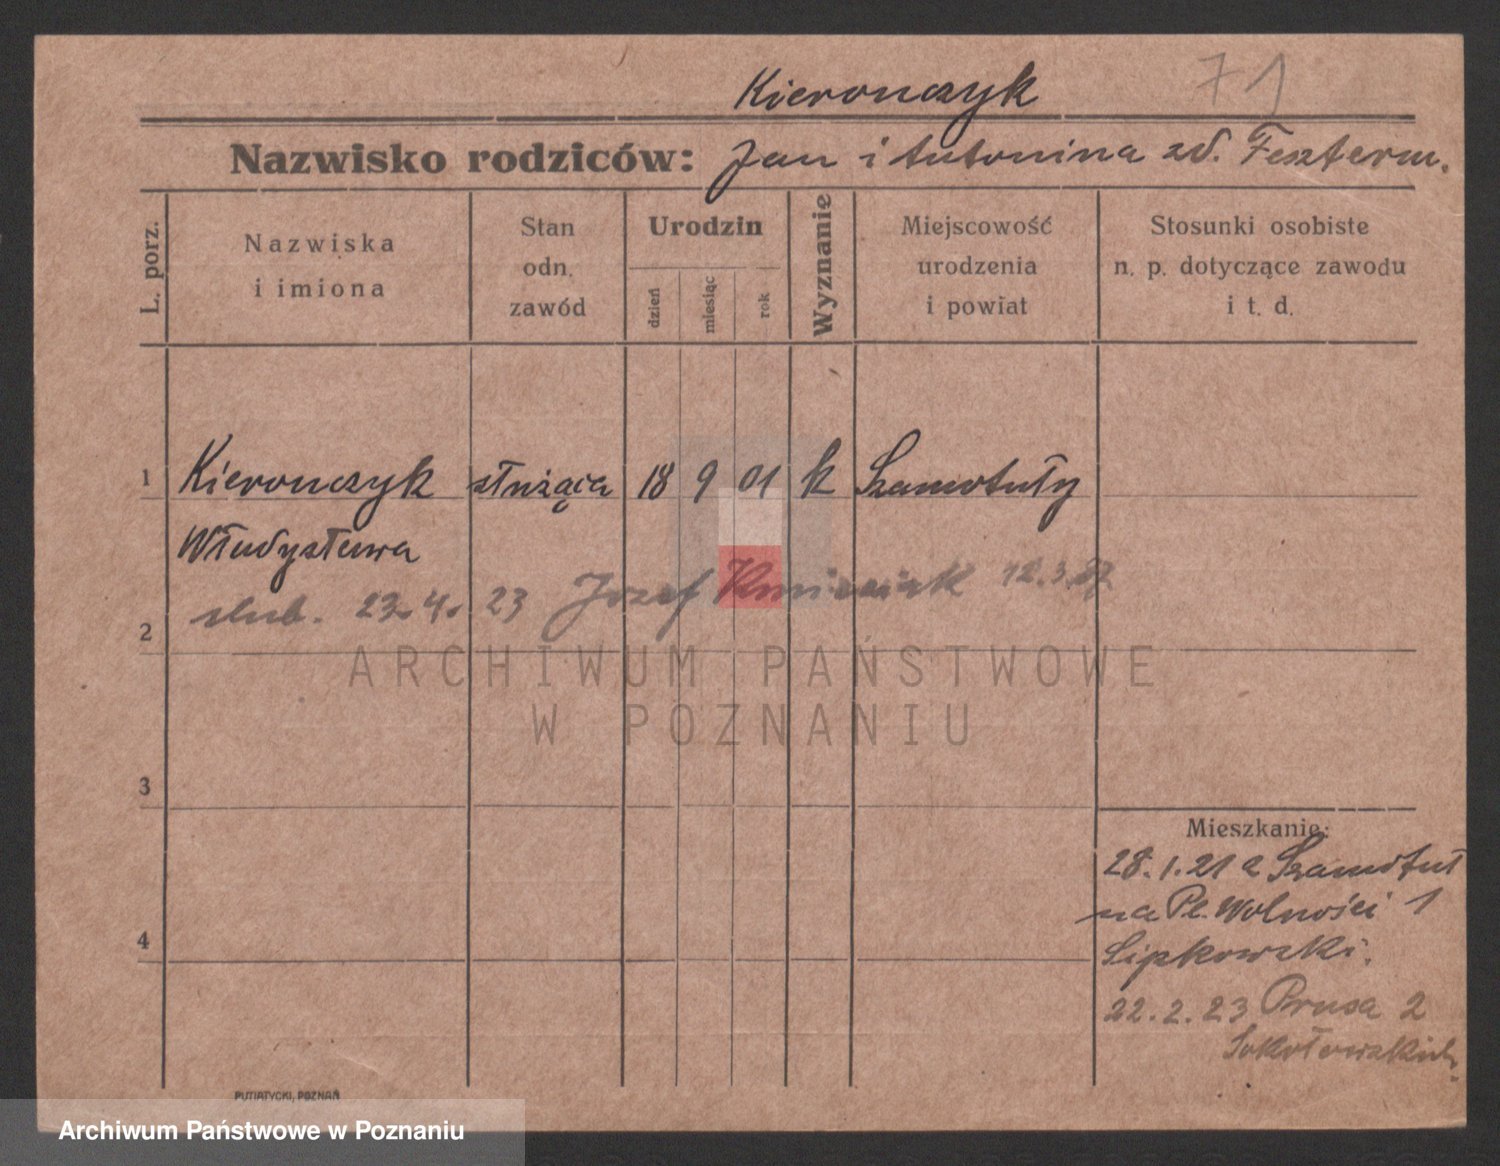 Kieronczyk 71
Nazwisko rodziców: Jan i Antonina zd. Feszterm.
L. porz.
Nazwiska i imiona
Stan odn. zawód
Urodzin
dzień
miesiąc
rok
Wyznanie
Miejscowość urodzenia i powiat
Stosunki osobiste n. p. dotyczące zawodu i t. d.
1 Kieronczyk służąca 18 9 01 k Szamotuły
Władysława
2 slub. 23. 4. 23 Józef 12.3.
ARCHIWUM PAŃSTWOWE
W POZNANIU
3
Mieszkanie:
28.1.21 z Szamotuł
na Pl. Wolności 1
4 Lipkowski.
22.2.23 Prusa 2
PUTIATYCKI, POZNAŃ
Archiwum Państwowe w Poznaniu